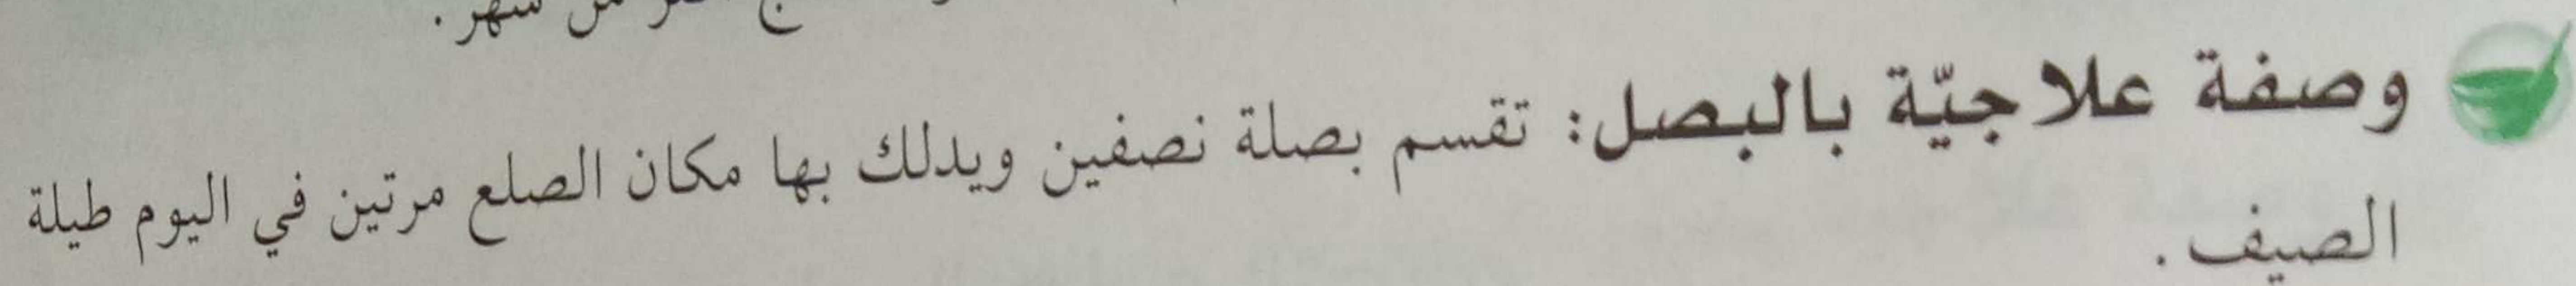 من شهر.
وصفة علاجيّة بالبصل: تقسم بصلة نصفين ويدلك بها مكان الصلع مرتين في اليوم طيلة
الصيف.